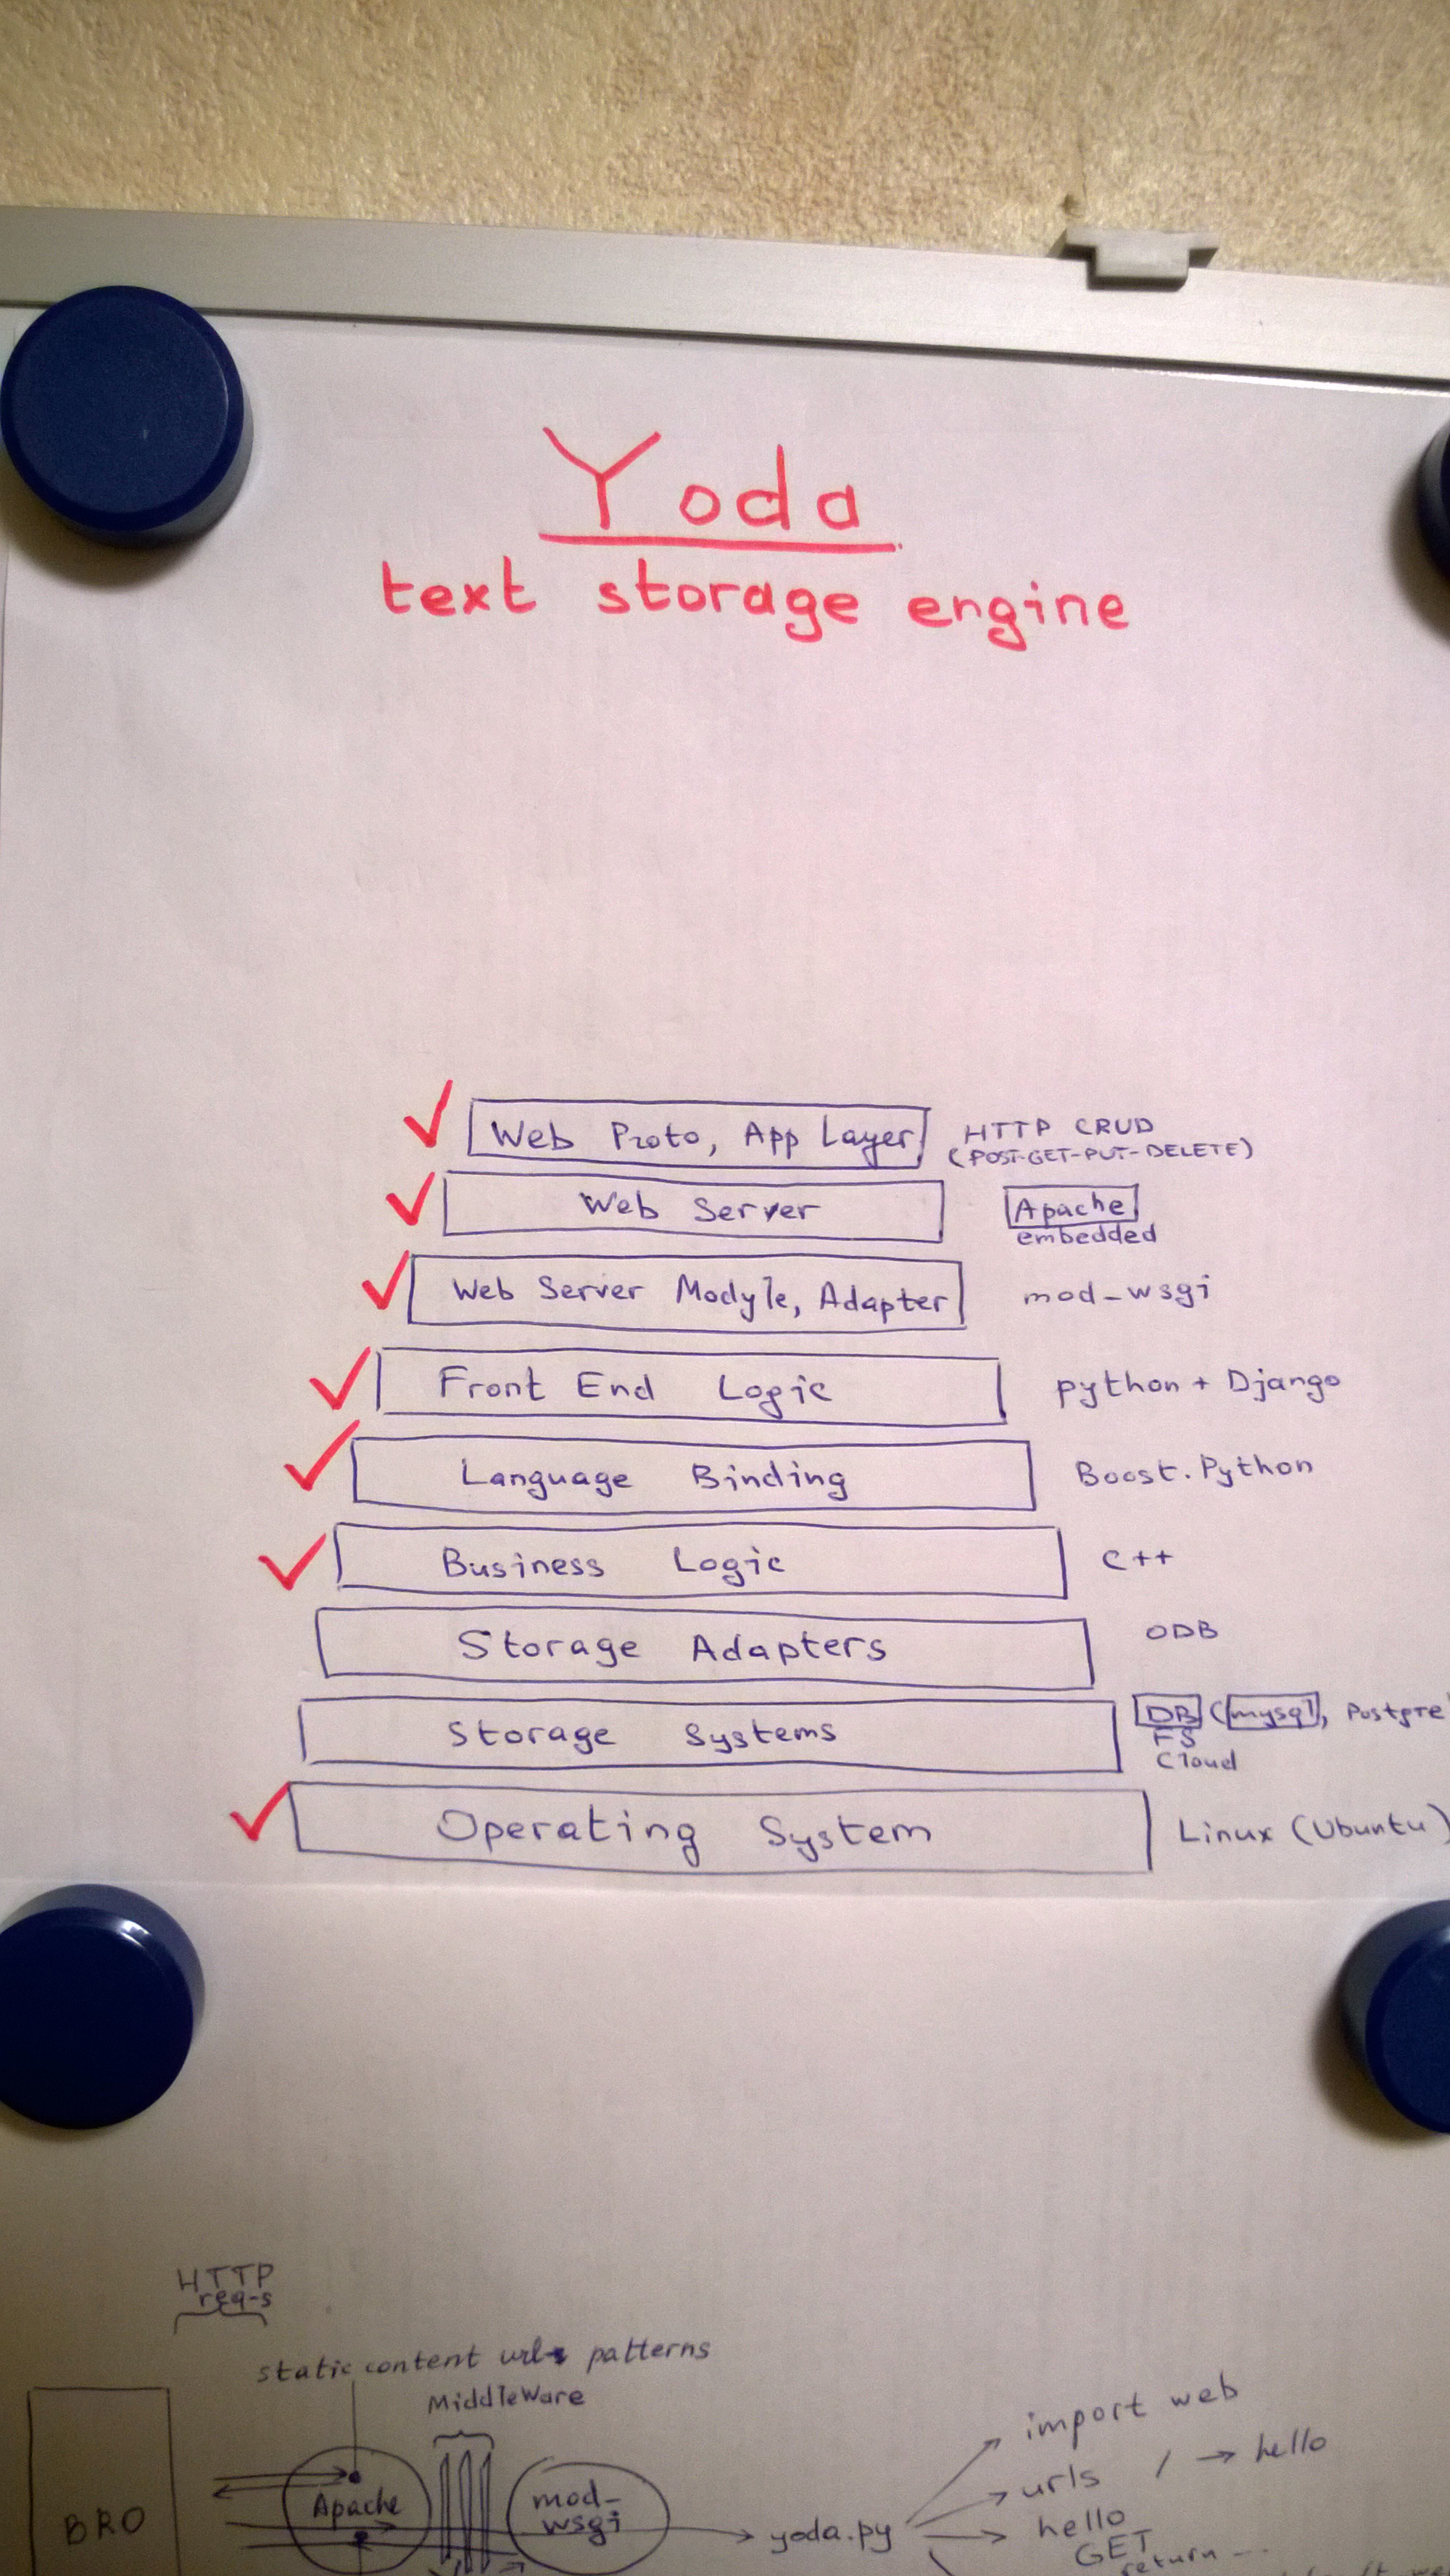 Yoda
text storage engine
Web Proto, App Layer HTTP CRUD
(POST-GET-PUT-DELETE)
Web Server Apache
embedded
Web Server Modyle, Adapter mod-wsgi
Front End Logic python + Django
Language Binding Boost.Python
Business Logic C++
Storage Adapters ODB
Storage Systems DB (mysql, Postgre
FS
Cloud
Operating System Linux (Ubuntu)
HTTP
req-s
static content urls patterns
MiddleWare
import web
urls / → hello
BRO Apache mod-
wsgi yoda.py hello
GET
return ...